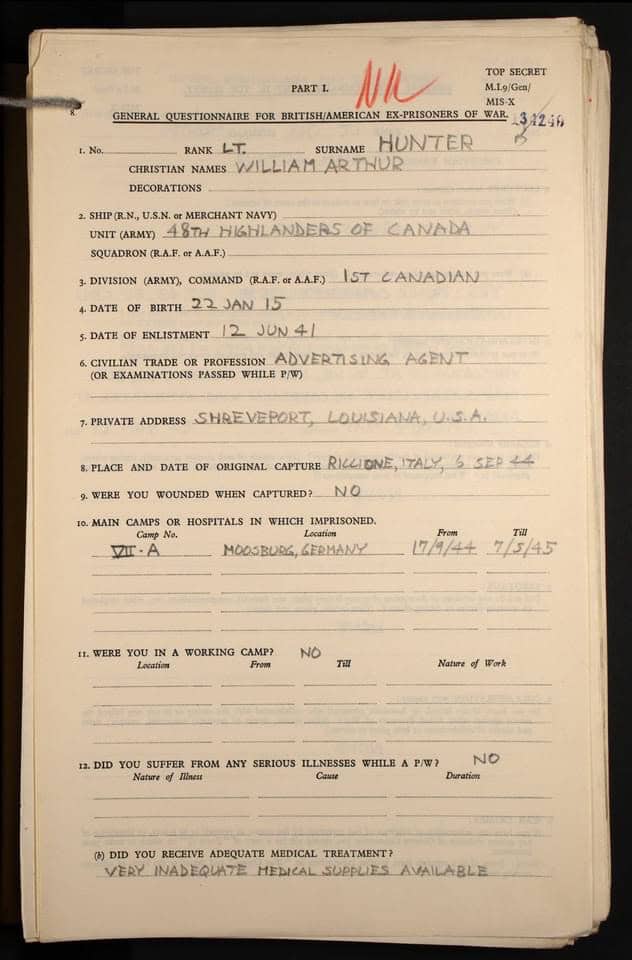 PART I.
TOP SECRET
M.I.9/Gen/
MIS-X
8.
GENERAL QUESTIONNAIRE FOR BRITISH/AMERICAN EX-PRISONERS OF WAR.
1. No. RANK LT. SURNAME HUNTER
CHRISTIAN NAMES WILLIAM ARTHUR
DECORATIONS
2. SHIP (R.N., U.S.N. or MERCHANT NAVY)
UNIT (ARMY) 48TH HIGHLANDERS OF CANADA
SQUADRON (R.A.F. or A.A.F.)
3. DIVISION (ARMY), COMMAND (R.A.F. or A.A.F.) 1ST CANADIAN
4. DATE OF BIRTH 22 JAN 15
5. DATE OF ENLISTMENT 12 JUN 41
6. CIVILIAN TRADE OR PROFESSION ADVERTISING AGENT
(OR EXAMINATIONS PASSED WHILE P/W)
7. PRIVATE ADDRESS SHREVEPORT, LOUISIANA, U.S.A.
8. PLACE AND DATE OF ORIGINAL CAPTURE RICCIONE, ITALY, 6 SEP 44
9. WERE YOU WOUNDED WHEN CAPTURED? NO
10. MAIN CAMPS OR HOSPITALS IN WHICH IMPRISONED.
Camp No. Location From Till
VII-A MOOSBURG, GERMANY 17/9/44 7/5/45
11. WERE YOU IN A WORKING CAMP? NO
Location From Till Nature of Work
12. DID YOU SUFFER FROM ANY SERIOUS ILLNESSES WHILE A P/W? NO
Nature of Illness Cause Duration
(b) DID YOU RECEIVE ADEQUATE MEDICAL TREATMENT?
VERY INADEQUATE MEDICAL SUPPLIES AVAILABLE